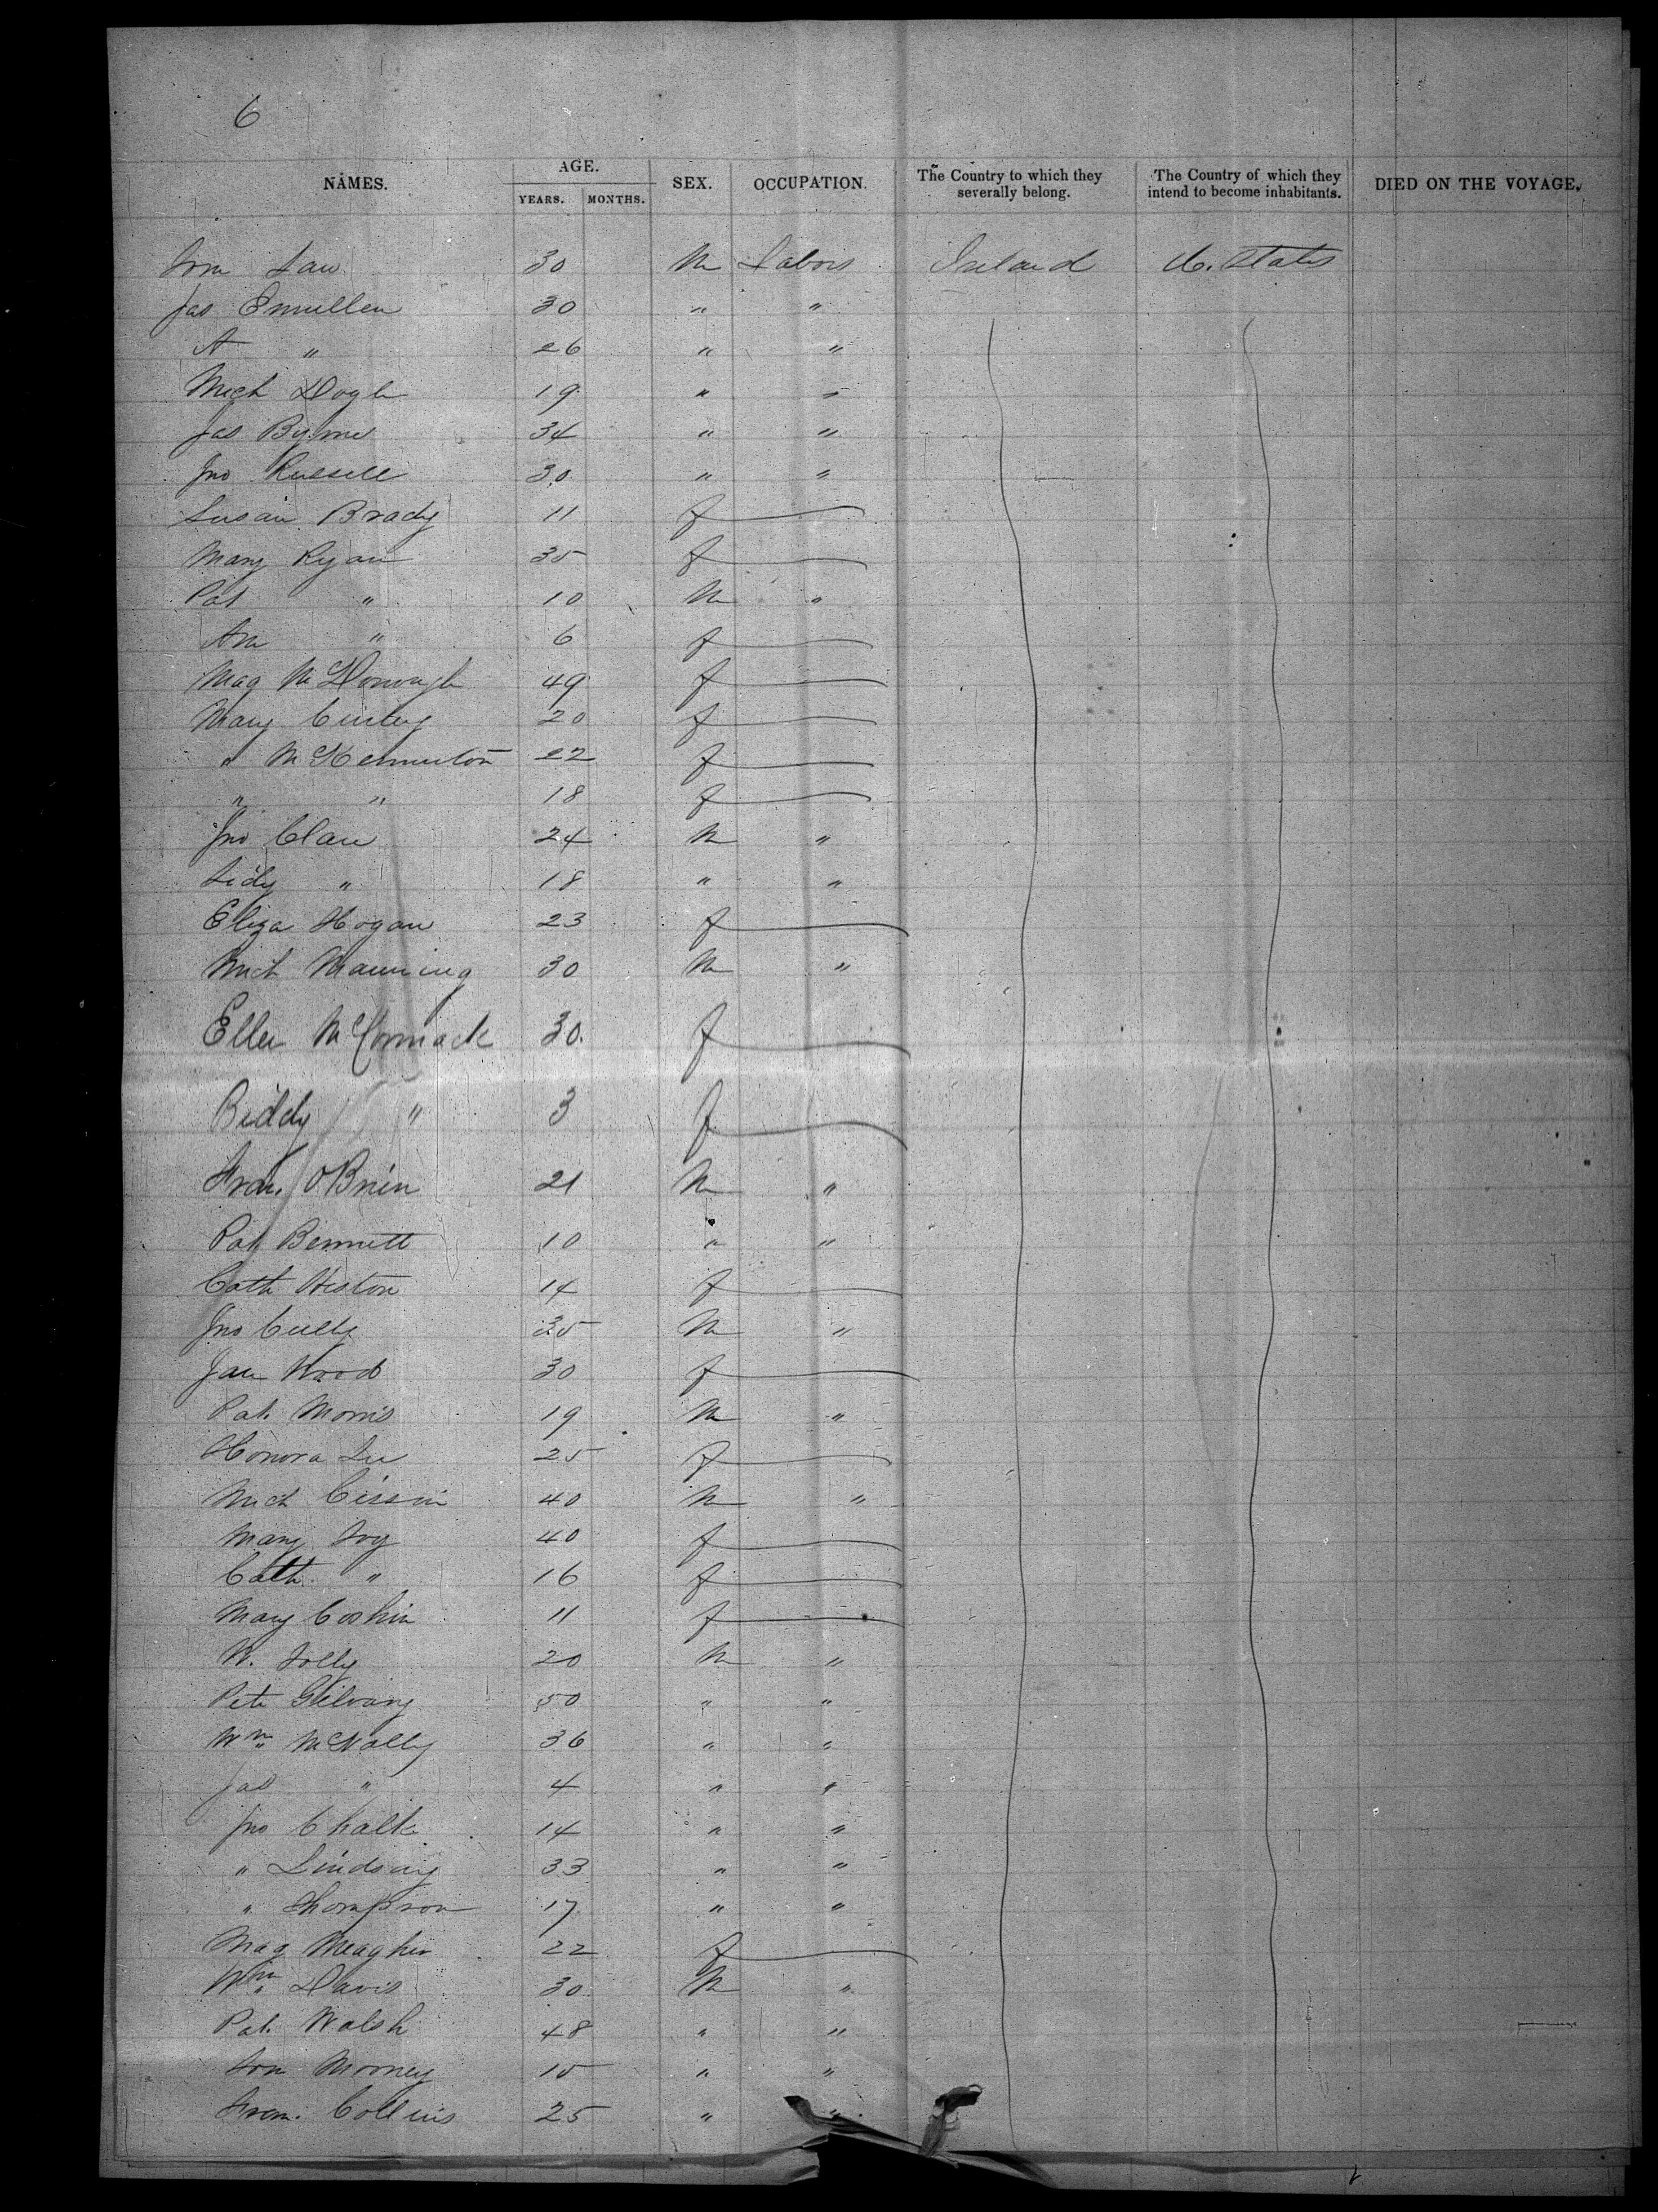 6
NAMES. AGE. YEARS. MONTHS. SEX. OCCUPATION. The Country to which they severally belong. The Country of which they intend to become inhabitants. DIED ON THE VOYAGE.
30 M Labors Ireland U. States
Jas Emullen 30 " "
A " 26 " "
Mich Doyle 19 " "
Jas Byrne 34 " "
Jno Russell 30 " "
Susan Brady 11 f
Mary Ryan 35 f
Pat " 10 M "
Ann " 6 f
Mag McDonough 49 f
Mary 20 f
" 22 f
" " 18 f
Jno Clan 24 M "
" 18 " "
Eliza Hogan 23 f
Mich Manning 30 M "
Ellen McCormack 30. f
Biddy " 3 f
Fran. O'Brien 21 M "
Pat Bennett 10 " "
Cath Heston 14 f
Jno Cully 35 M "
Jane Wood 30 f
Pat. Morris 19 M "
Honora Lee 25 f
Mich 40 M "
Mary 40 f
Cath. " 16 f
Mary 11 f
W. Jolly 20 M "
Pete 50 " "
Wm McNally 36 " "
Jas " 4 " "
Jno Chalk 14 " "
" Lindsay 33 " "
" Thompson 17 " "
Mag Meagher 22 f
Wm Davis 30 M "
Pat. Walsh 48 " "
Mooney 15 " "
Fran. Collins 25 " "